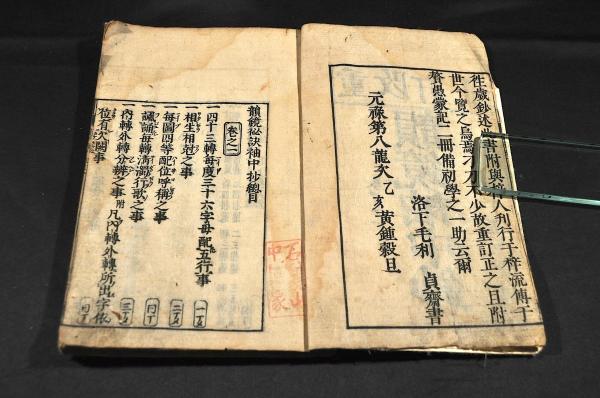 往歳鈔述書附與梓人刊行于梓流傳于
世今覽之烏焉刁刀不少故重訂正之且附
愚蒙記二冊備初學之一助云爾
洛下毛利 貞齋書
元祿第八龍次乙亥黃鍾穀旦
韻鏡秘訣袖中抄總目
卷之一
一四十三轉每度三十六字母配五行事
一相生相尅之事
一每圖四等配位呼稱之事
一諷誦每轉清濁行歌之事
一內轉外轉分辨之事 附 凡內轉外轉所出字依
位有次闕事